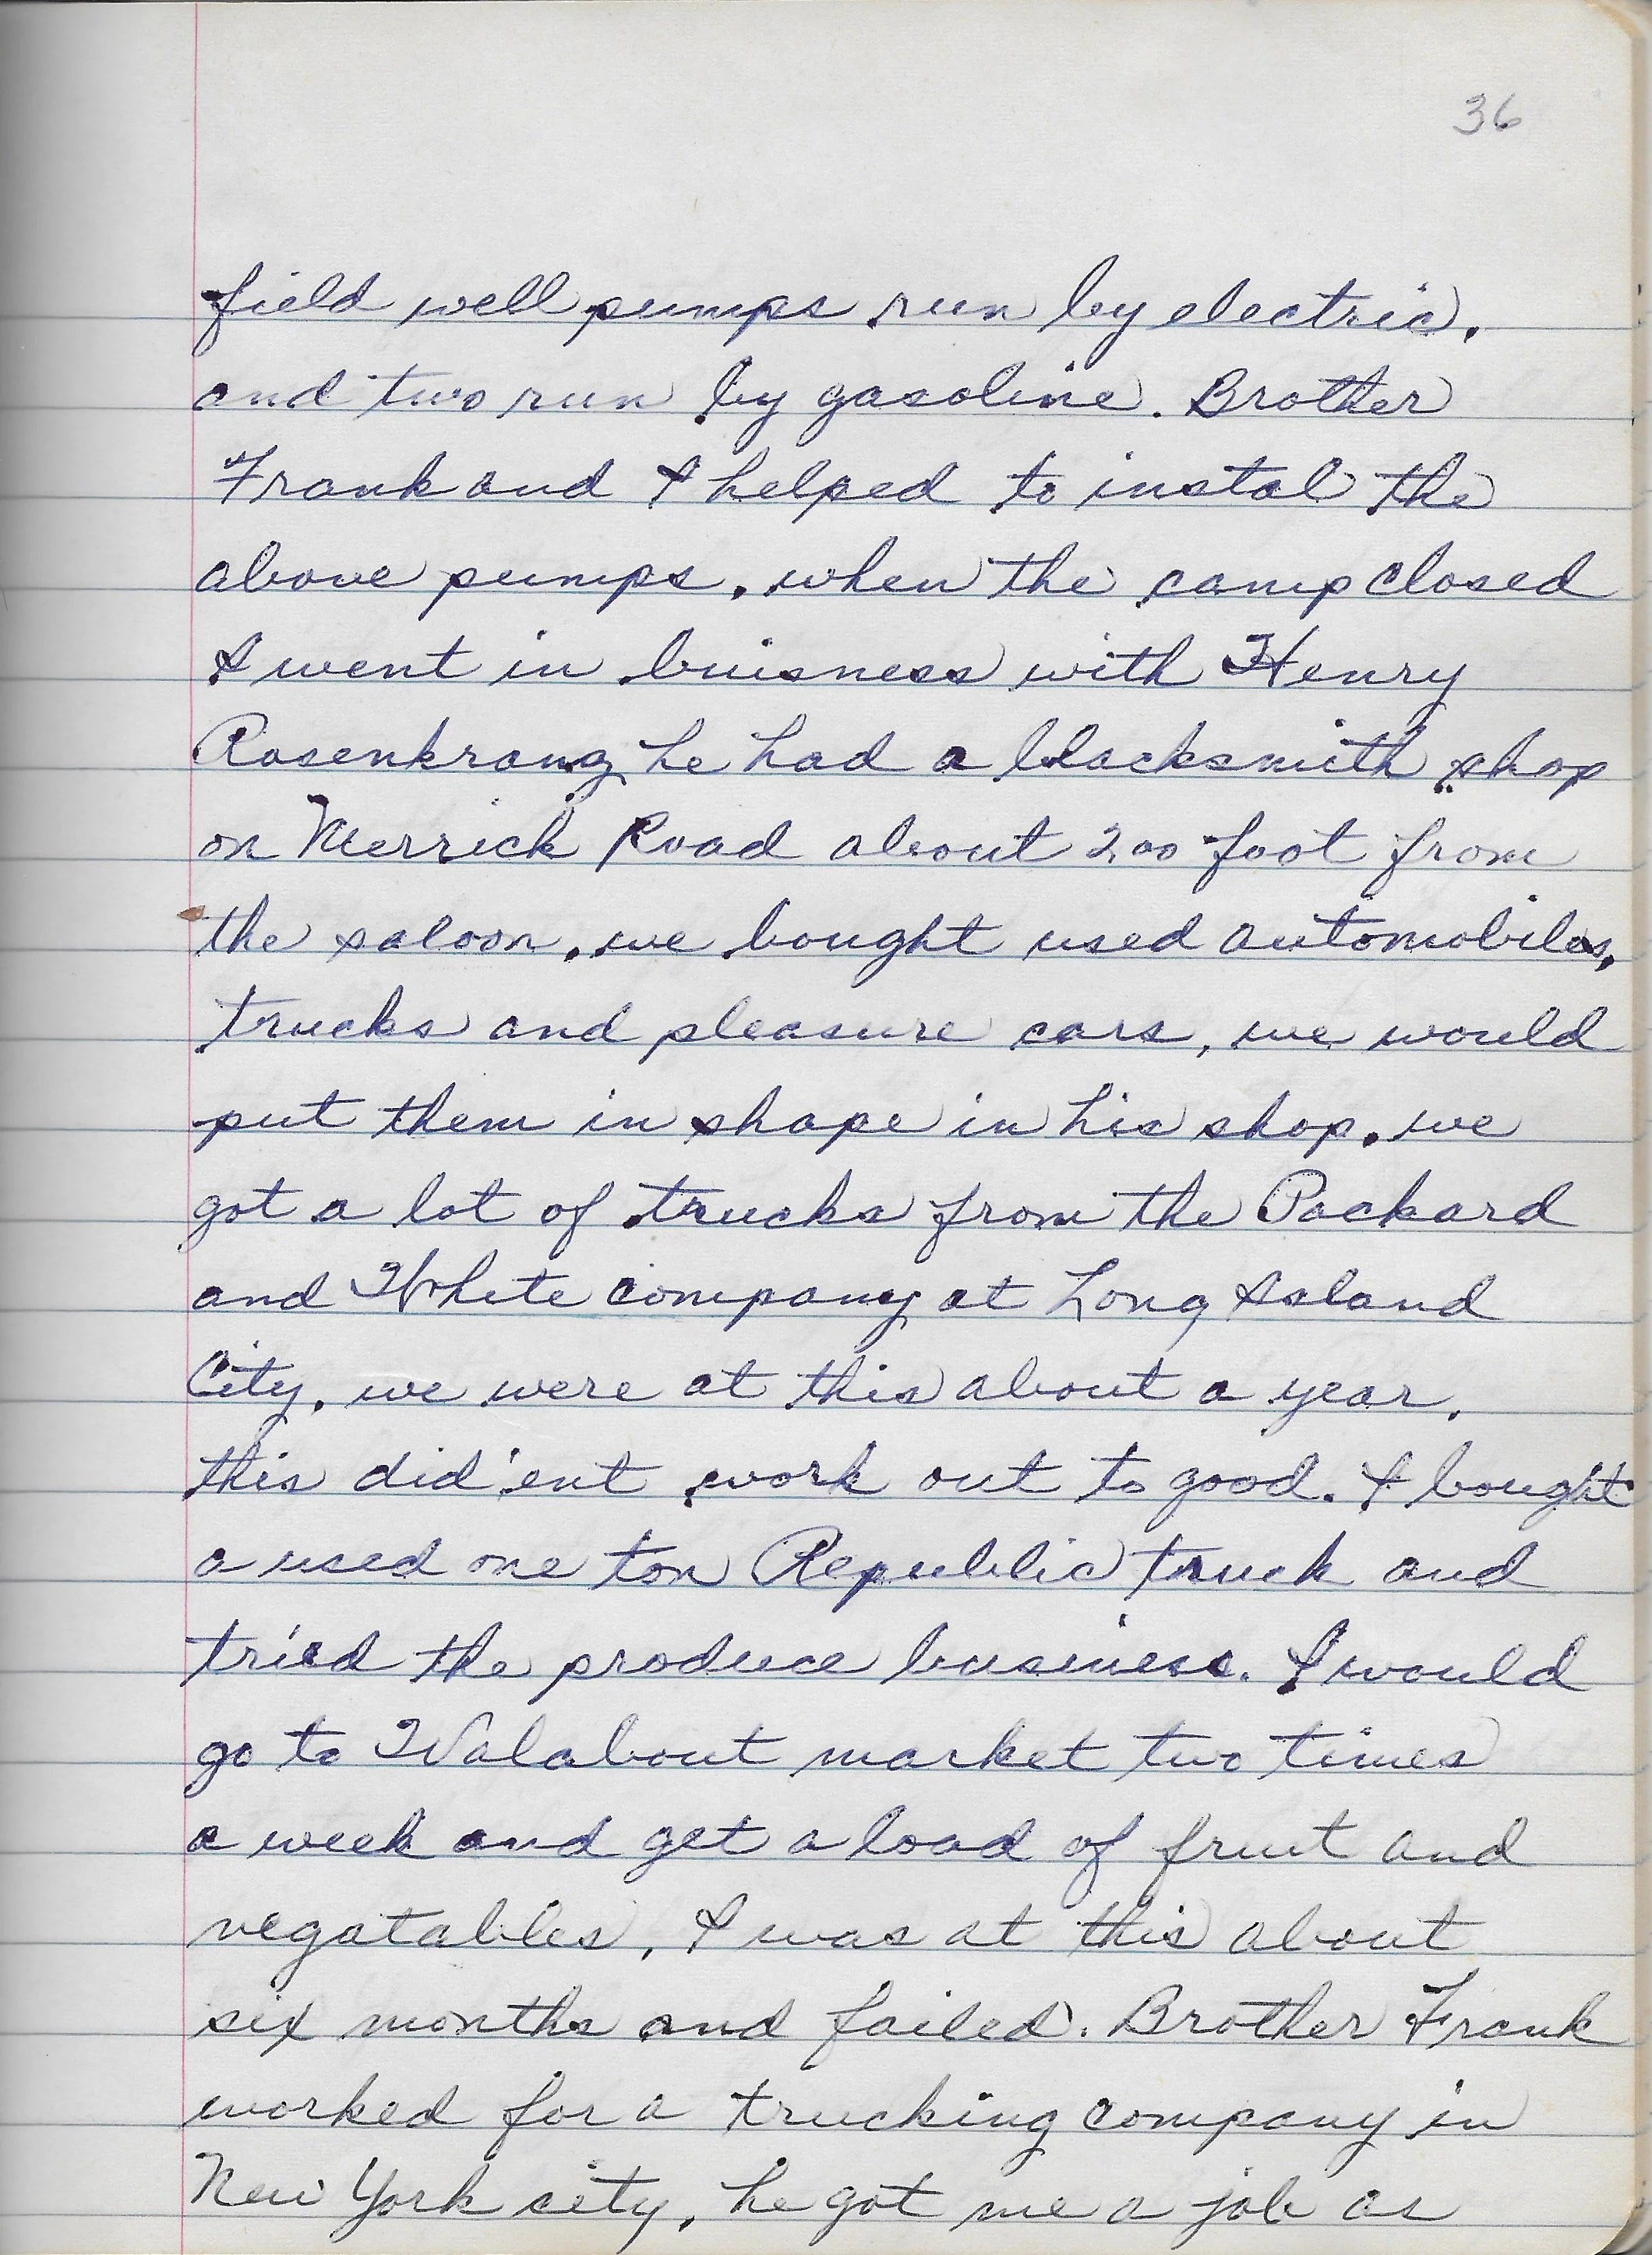 36
field well pumps run by electric.
and two run by gasoline. Brother
Frank and I helped to instal the
above pumps. when the camp closed
I went in buisness with Henry
Rosenkranz he had a blacksmith shop
on Merrick Road about 200 foot from
the saloon. we bought used automobiles,
trucks and pleasure cars, we would
put them in shape in his shop. we
got a lot of trucks from the Packard
and White company at Long Island
City. we were at this about a year.
this did'ent work out to good. I bought
a used one ton Republic truck and
tried the produce business. I would
go to Walabout market two times
a week and get a load of fruit and
vegatables. I was at this about
six months and failed. Brother Frank
worked for a trucking company in
New York city. he got me a job as